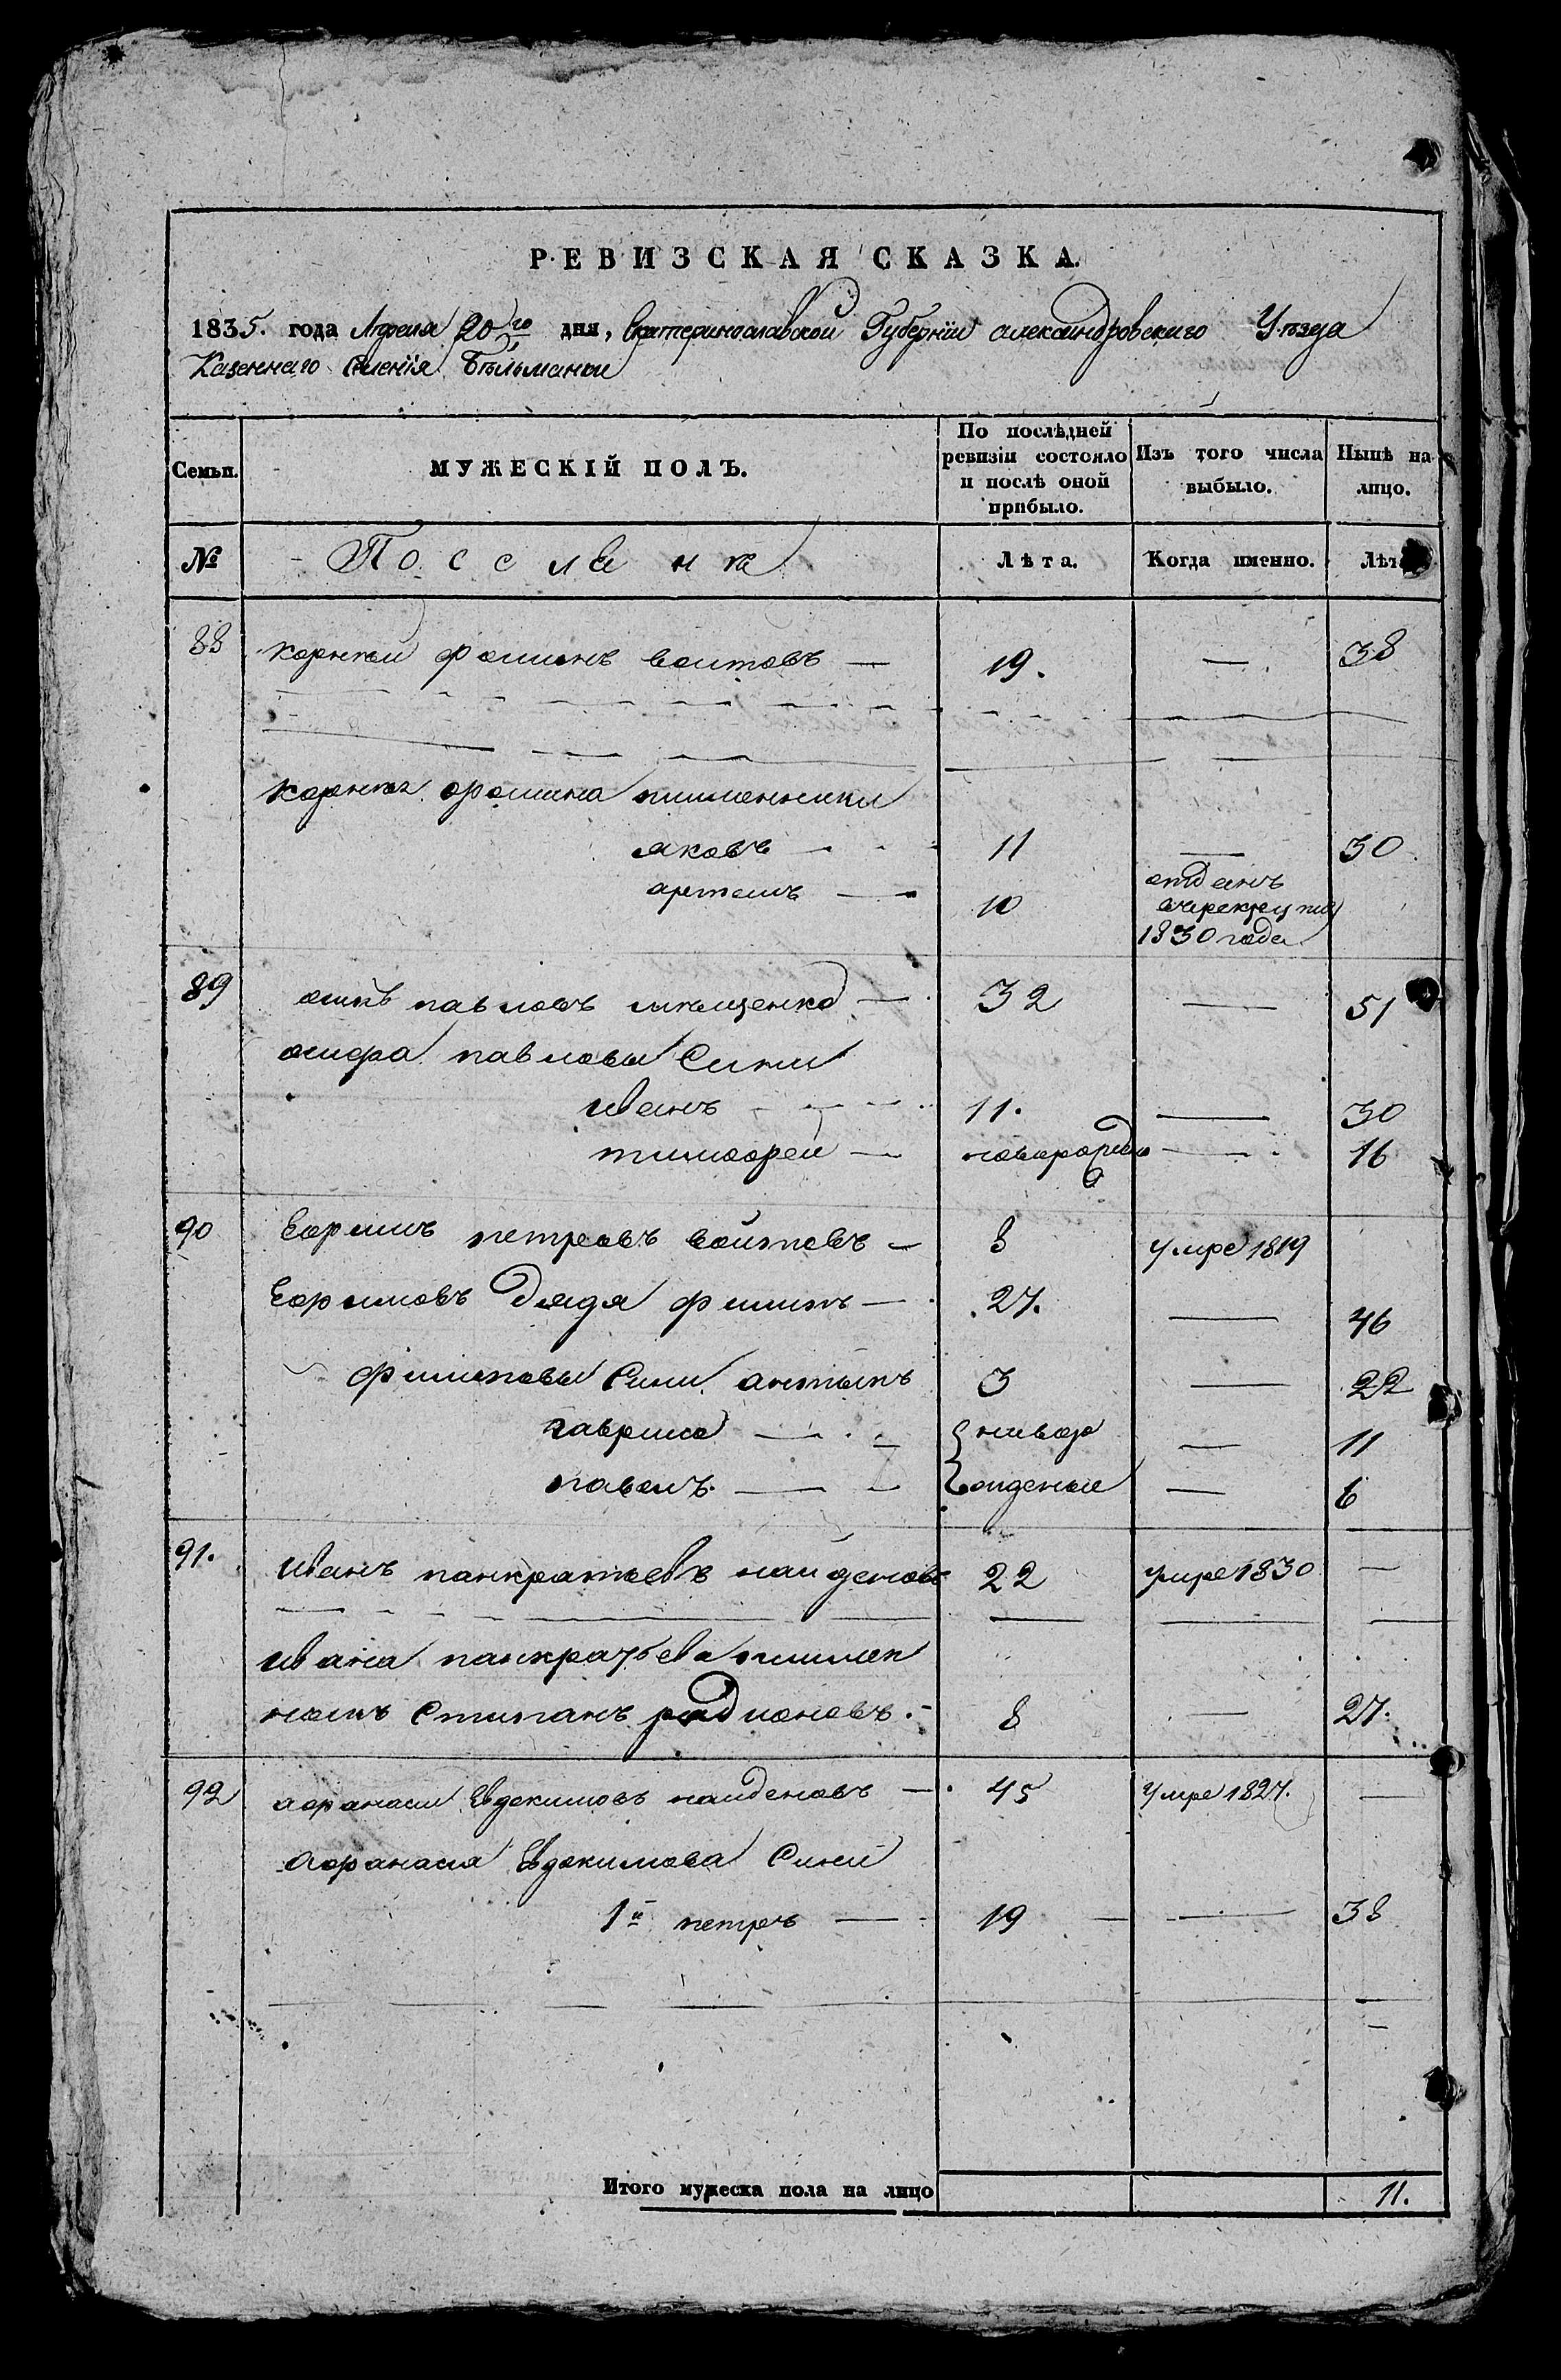 РЕВИЗСКАЯ СКАЗКА.
1835. года Апреля 20го дня, Екатеринославской Губернïи александровскаго Уѣзда
Казеннаго Селенïя Бѣльманки
Семьи. МУЖЕСКІЙ ПОЛЪ. По послѣдней ревизіи состояло и послѣ оной прибыло. Изъ того числа выбыло. Нынѣ на лицо.
№ Поселяне Лѣта. Когда именно. Лѣта
88 корнѣй фоминъ воитовъ — 19. — 38
корнѣя фомина племенники
яковъ 11 — 30
артемъ — 10 отданъ
врекруты
1830 года
89 осипъ павловъ — 32 — 51
осифа павлова Сини
иванъ 11. — 30
тимофей — новорожде — 16
90 Ефимъ петровъ войтовъ — 8 умре 1819
Ефимовъ дядя филипъ — 27. — 46
филиповы Сини антипъ 3 — 22
гаврило — новоро — 11
павелъ. — жденые — 6
91. иванъ панкратьевъ найденовъ 22 умре 1830 —
ивана панкратьева племен
никъ Степанъ радионовъ. 8 — 27.
92 афанасии Евдокимовъ наиденовъ — 45 Умре 1827. —
Афанасия Евдокимова Сини
1й петръ — 19 — 38
Итого мужеска пола на лицо 11.